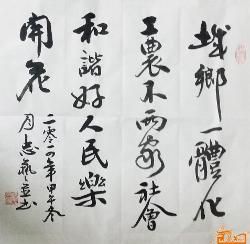 城鄉一體化
工農不兩家社會
和諧好人民樂
開花
二零一四年甲午冬
月志藝立書